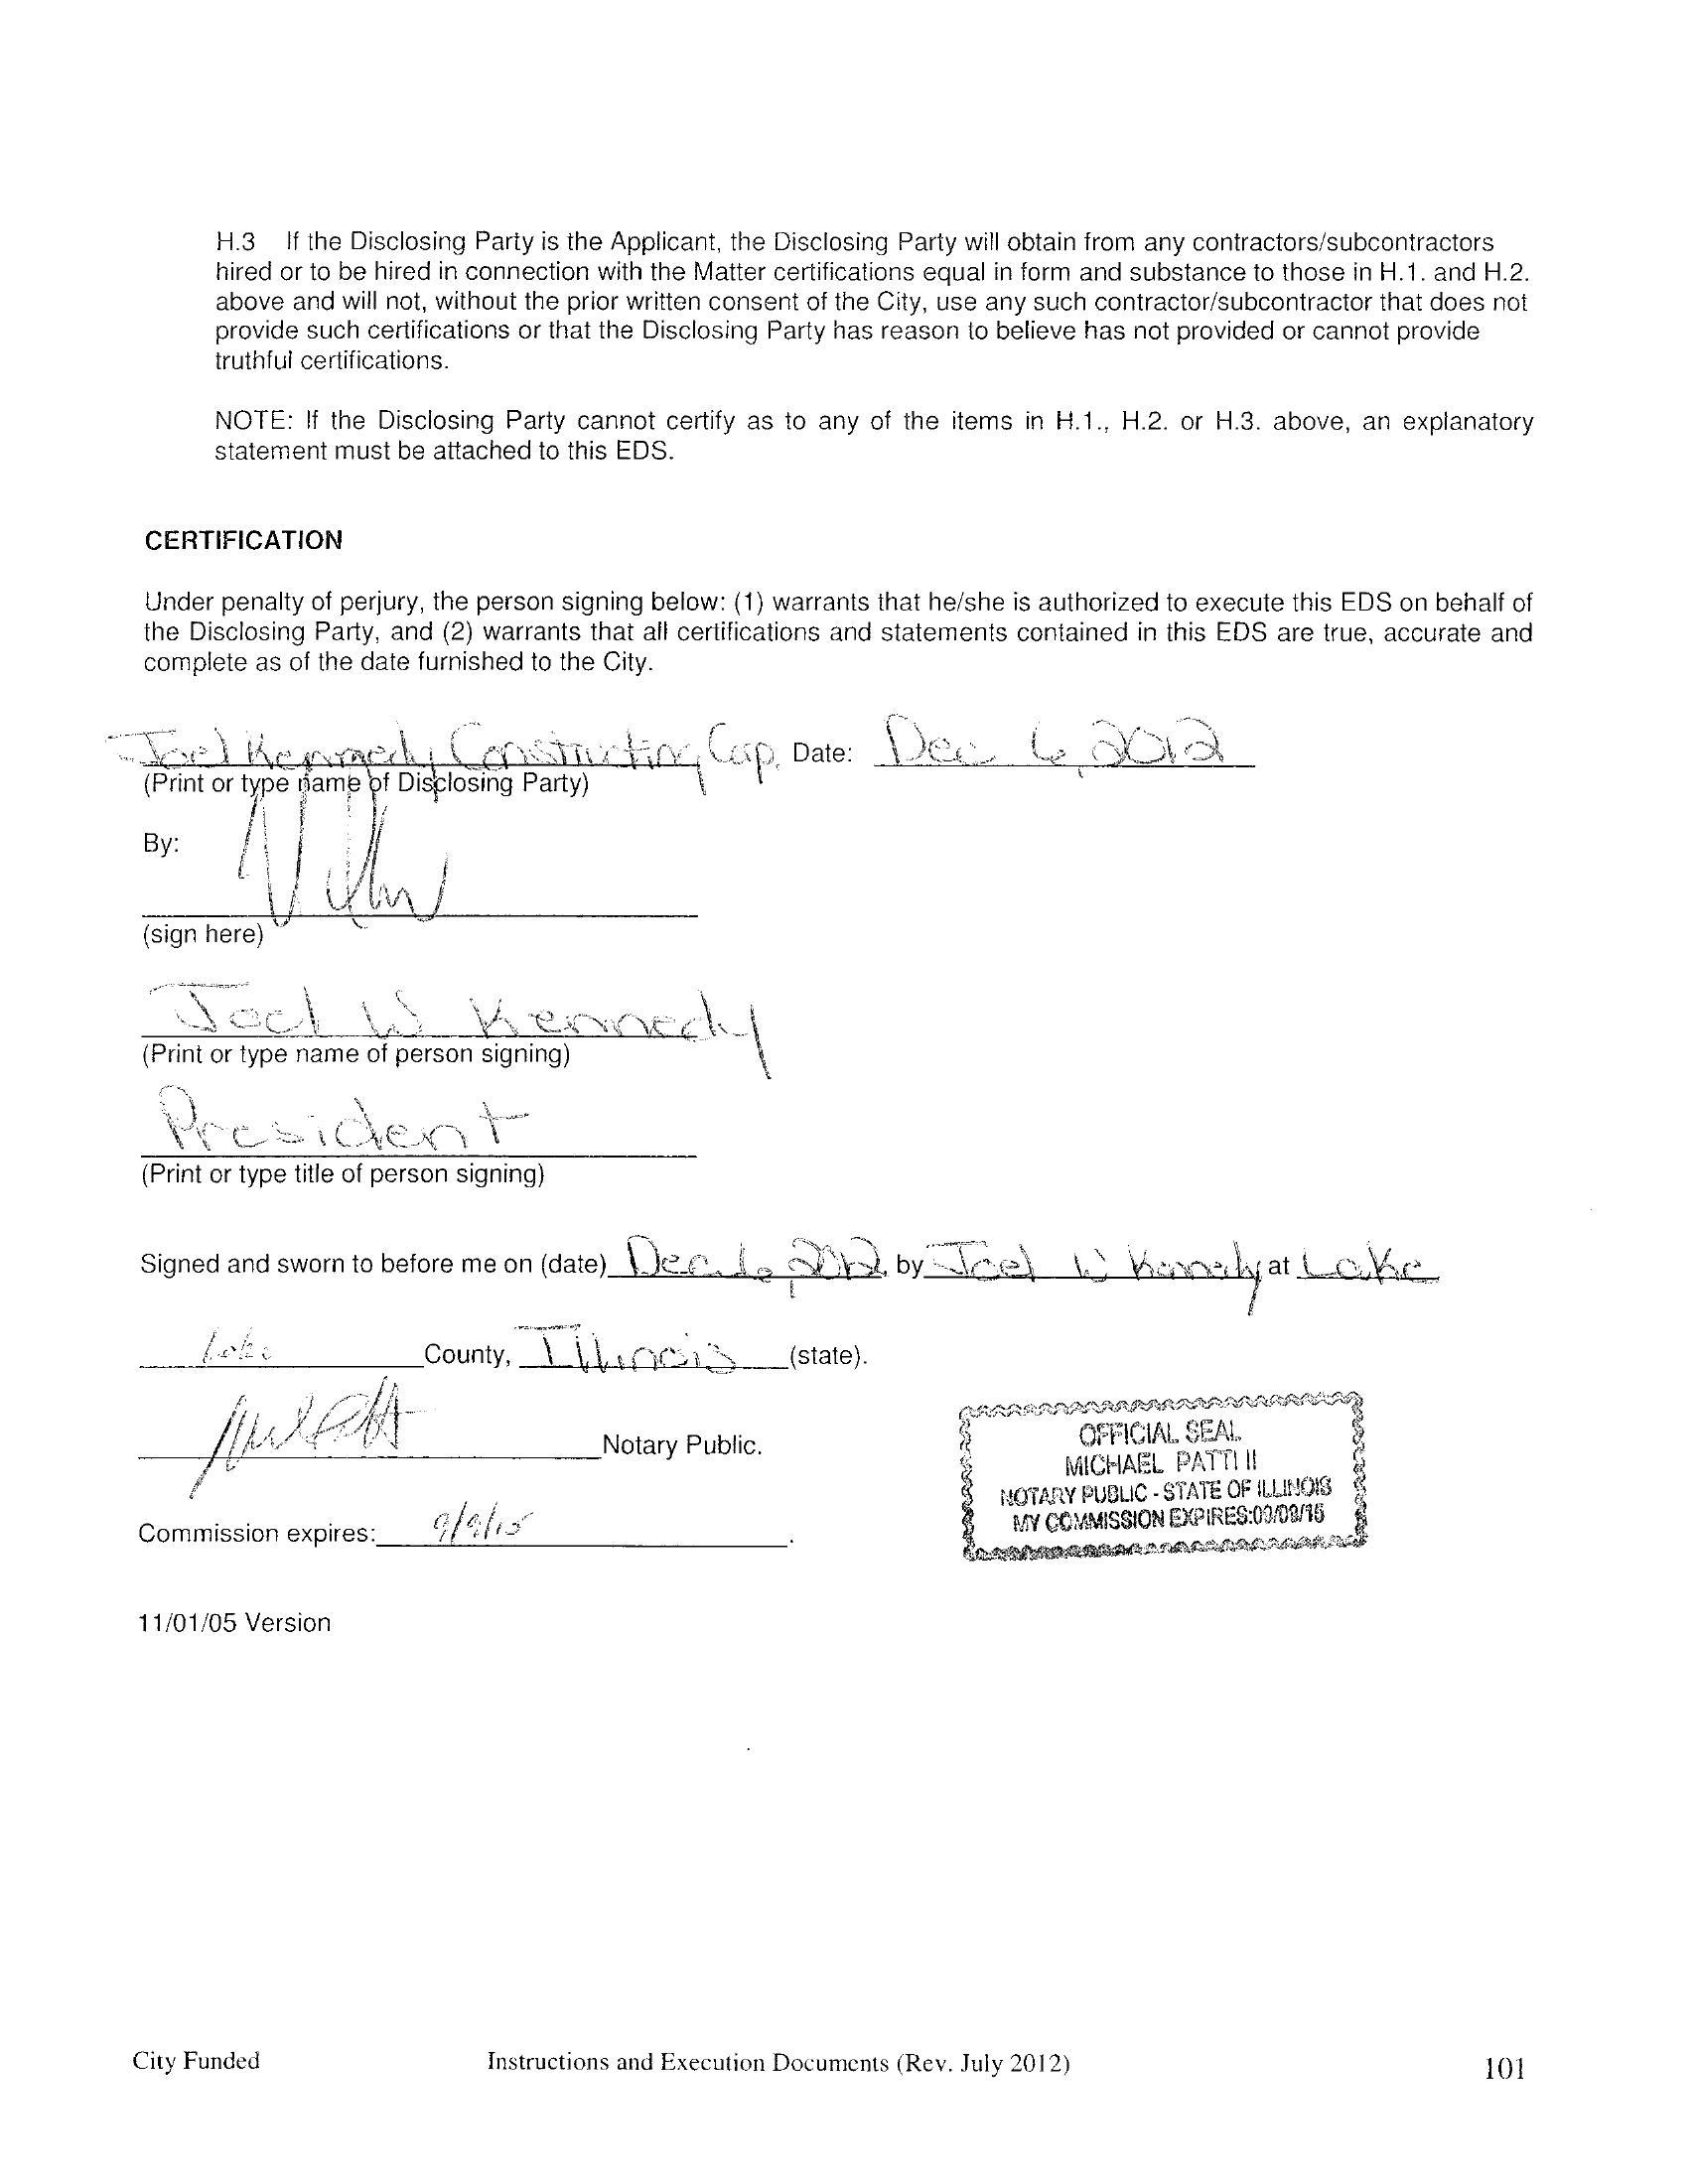 H.3 If the Disclosing Party is the Applicant, the Disclosing Party will obtain from any contractors/subcontractors
hired or to be hired in connection with the Matter certifications equal in form and substance to those in H.1. and H.2.
above and will not, without the prior written consent of the City, use any such contractor/subcontractor that does not
provide such certifications or that the Disclosing Party has reason to believe has not provided or cannot provide
truthful certifications.
NOTE: If the Disclosing Party cannot certify as to any of the items in H.1., H.2. or H.3. above, an explanatory
statement must be attached to this EDS.
CERTIFICATION
Under penalty of perjury, the person signing below: (1) warrants that he/she is authorized to execute this EDS on behalf of
the Disclosing Party, and (2) warrants that all certifications and statements contained in this EDS are true, accurate and
complete as of the date furnished to the City.
Joel Kennedy Constructing Corp. Date: Dec 6, 2012
(Print or type name of Disclosing Party)
By:
(sign here)
Joel W Kennedy
(Print or type name of person signing)
President
(Print or type title of person signing)
Signed and sworn to before me on (date) Dec. 6, 2012, by Joel W Kennedy at Lake
Lake County, Illinois (state).
Notary Public.
OFFICIAL SEAL
MICHAEL PATTI II
NOTARY PUBLIC - STATE OF ILLINOIS
MY COMMISSION EXPIRES:09/09/15
Commission expires: 9/9/15.
11/01/05 Version
City Funded Instructions and Execution Documents (Rev. July 2012) 101